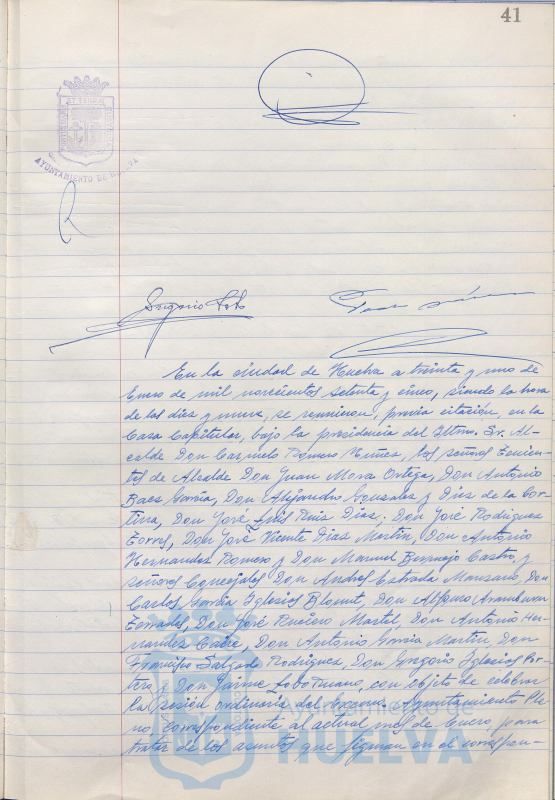 41
AYUNTAMIENTO DE HUELVA
En la ciudad de Huelva a treinta y uno de
Enero de mil novecientos setenta y cinco, siendo la hora
de las diez y nueve, se reunieron, previa citación, en la
Casa Capitular, bajo la presidencia del Iltmo. Sr. Al-
calde Don Carmelo Romero Núñez, los señores Tenien-
tes de Alcalde Don Juan Mora Ortega, Don Antonio
Baes García, Don Alejandro Gonzalez y Diez de la Cor-
tina, Don José Luis Ruiz Diaz; Don José Rodriguez
Torres, Don José Vicente Diaz Martin, Don Antonio
Hernandez Romero y Don Manuel Bermejo Castro, y
señores Concejales Don Andres Estrada Manzano, Don
Carlos García Iglesias Don Alfonso Aramburu
Terrades, Don José Martel, Don Antonio Her-
nandez Don Antonio Garcia Martin, Don
Francisco Salgado Rodriguez, Don Gregorio Iglesias Por-
tero y Don Jaime Lobo con objeto de celebrar
la sesión ordinaria del Excmo. Ayuntamiento Ple-
no, correspondiente al actual mes de Enero, para
tratar de los asuntos que figuran en el correspon-
HUELVA